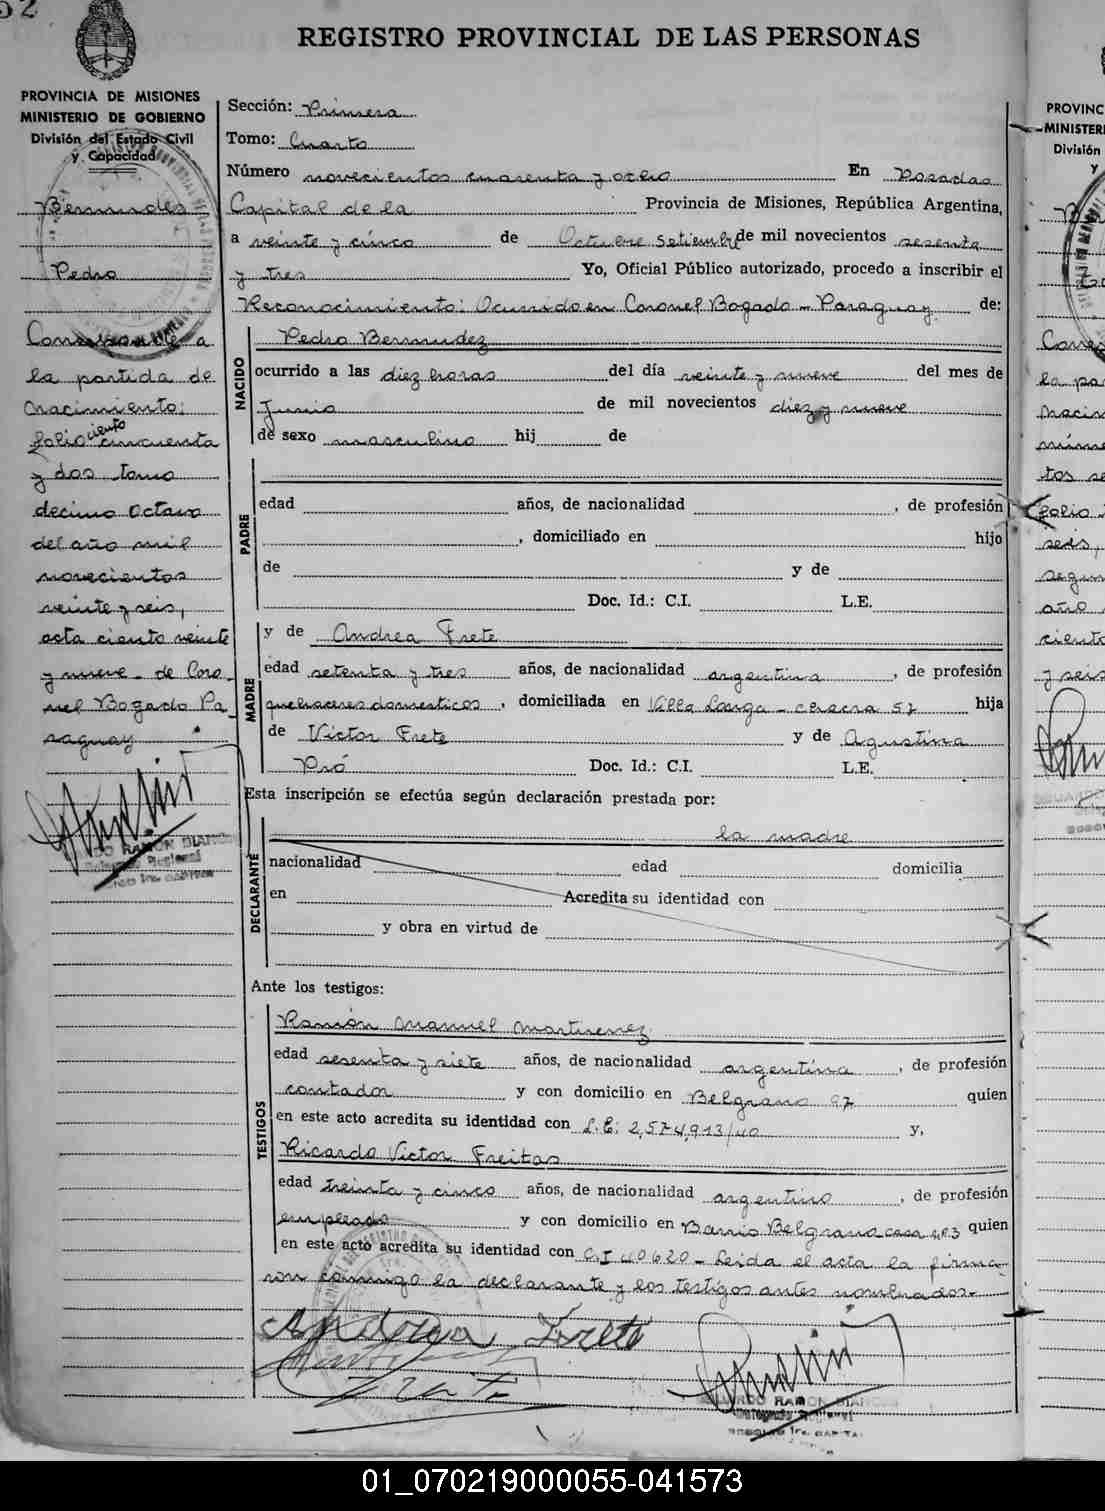 52
REGISTRO PROVINCIAL DE LAS PERSONAS
PROVINCIA DE MISIONES
MINISTERIO DE GOBIERNO
División del Estado Civil
y Capacidad
Bermudes
Pedro
Correspo a
la partida de
nacimiento:
folio ciento cincuenta
y dos tomo
decimo Octavo
del año mil
novecientos
veinte y seis,
acta ciento veinte
y nueve - de Coro-
nel Bogado Pa-
raguay
RAMON
Delegado Regional
Sección: Primera
Tomo: Cuarto
Número novecientos cuarenta y ocho En Posadas
Capital de la Provincia de Misiones, República Argentina,
a veinte y cinco de Octubre Setiembre de mil novecientos sesenta
y tres Yo, Oficial Público autorizado, procedo a inscribir el
Reconocimiento: Ocurrido en Coronel Bogado - Paraguay de:
NACIDO
Pedro Bermudez
ocurrido a las diez horas del día veinte y nueve del mes de
Junio de mil novecientos diez y nueve
de sexo masculino hij de
PADRE
edad años, de nacionalidad , de profesión
, domiciliado en hijo
de y de
Doc. Id.: C.I. L.E.
MADRE
y de Andrea Frete
edad setenta y tres años, de nacionalidad argentina , de profesión
quehaceres domesticos , domiciliada en Villa Longa - chacra 57 hija
de Victor Frete y de Agustina
Pró Doc. Id.: C.I. L.E.
Esta inscripción se efectúa según declaración prestada por:
DECLARANTE
la madre
nacionalidad edad domicilia
en Acredita su identidad con
y obra en virtud de
Ante los testigos:
TESTIGOS
Ramón Manuel Martinez
edad sesenta y siete años, de nacionalidad argentina , de profesión
contador y con domicilio en Belgrano 97 quien
en este acto acredita su identidad con L.E: 2,574,913/40 y,
Ricardo Victor Freitas
edad treinta y cinco años, de nacionalidad argentino , de profesión
empleado y con domicilio en Barrio Belgrano casa 403 quien
en este acto acredita su identidad con C.I 40620 - Leida el acta la firma-
ron conmigo la declarante y los testigos antes nombrados.
Andrea Frete
RAMON
Delegado Regional
PROVINC
MINISTERI
División
y
01_070219000055-041573